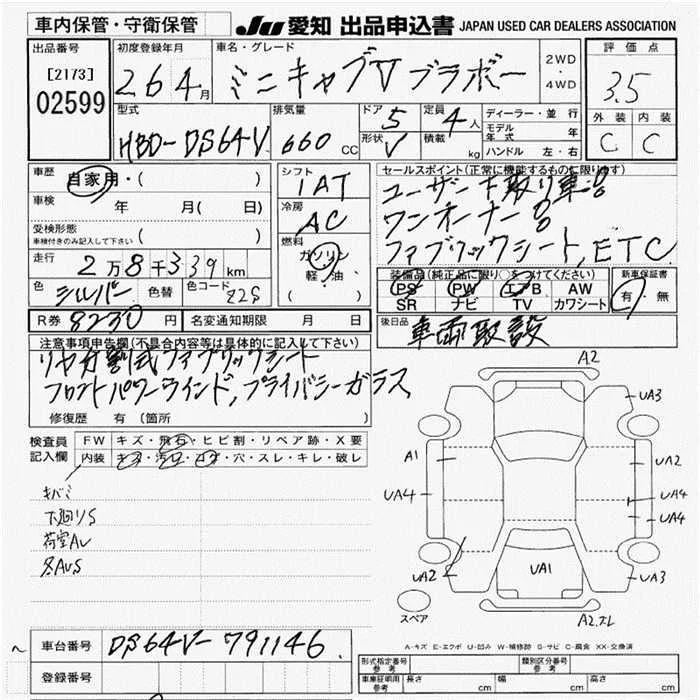 車内保管・守衛保管 JU 愛知 出品申込書 JAPAN USED CAR DEALERS ASSOCIATION
出品番号 初度登録年月 車名・グレード 評価点
[2173] 26 4月 ミニキャブV ブラボー 2WD・4WD 3.5
02599
型式 排気量 ドア 5 定員 4人 ディーラー・並行 外装 内装
HBD-DS64V 660 CC 形状 V 積載 kg モデル年式 年 C C
ハンドル 左・右
車歴 自家用・( ) シフト セールスポイント(正常に機能するものに限ります)
1AT ユーザー下取り車
車検 年 月( 日) 冷房 AC ワンオーナー
受検形態 車検付きのみ記入して下さい ( ) 燃料 ファブリックシート,ETC
走行 2万8千339km ガソリン
軽・油
( )
装備品(純正品に限り○をつけてください) 新車保証書
色 シルバー 色替 色コード 82S PS PW エアB AW 有・無
SR ナビ TV カワシート
R券 8230円 名変通知期限 月 日 後日品 車両取説
注意事項申告欄(不具合内容等は具体的に記入して下さい)
リヤ分割式ファブリックシート
フロントパワーウインド,プライバシーガラス
修復歴 有 (箇所 )
検査員記入欄 FW キズ・飛石・ヒビ割・リペア跡・X要
内装 キズ・汚レ・コゲ・穴・スレ・キレ・破レ
キバミ
下廻りS
荷室AU
A2
UA3
A1
UA2
UA4
UA4
UA4
UA2
UA1
UA3
スペア
A-キズ E-エクボ U-凹み W-補修跡 S-サビ C-腐食 XX-交換済
車台番号 DS64V-791146
登録番号
形式指定番号 参考 類別区分番号 参考
車庫証明用 参考 長さ cm 幅 cm 高さ cm